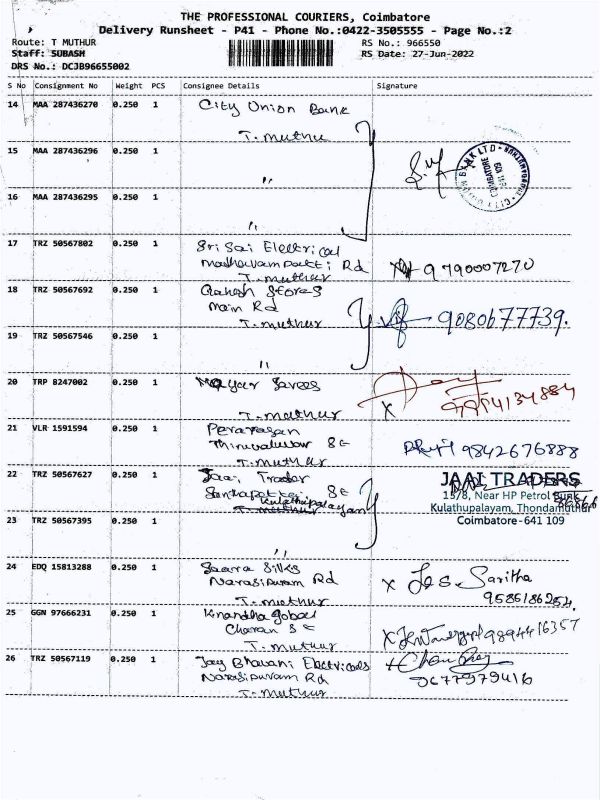 THE PROFESSIONAL COURIERS, Coimbatore
Delivery Runsheet - P41 - Phone No.:0422-3505555 - Page No.:2
Route: T MUTHUR RS No.: 966550
Staff: SUBASH RS Date: 27-Jun-2022
DRS No.: DCJB96655002
S No Consignment No Weight PCS Consignee Details Signature
14 MAA 287436270 0.250 1 City Union Bank
T. muthur
15 MAA 287436296 0.250 1 "
16 MAA 287436295 0.250 1 "
17 TRZ 50567802 0.250 1 Sri Sai Electrical
madhavampatti Rd 9790007270
T. muthur
18 TRZ 50567692 0.250 1 Stores
main Rd 9080677739.
T. muthur
19 TRZ 50567546 0.250 1 "
20 TRP 8247002 0.250 1 Sarees
T. muthur X
21 VLR 1591594 0.250 1
Thiruvalluvar St 9842676888
T. muthur
22 TRZ 50567627 0.250 1 Jaai Trader JAAI TRADERS
St 15/8, Near HP Petrol Bunk
Kulathupalayam Kulathupalayam, Thondamuthur
23 TRZ 50567395 0.250 1 Coimbatore-641 109
"
24 EDQ 15813288 0.250 1 Saara Silks
Narasipuram Rd X Saritha
T. muthur 9585186254.
25 GGN 97666231 0.250 1
Charan St X 9894416357
T. muthur
26 TRZ 50567119 0.250 1 Jay Bhavani Electricals
Narasipuram Rd
T. muthur